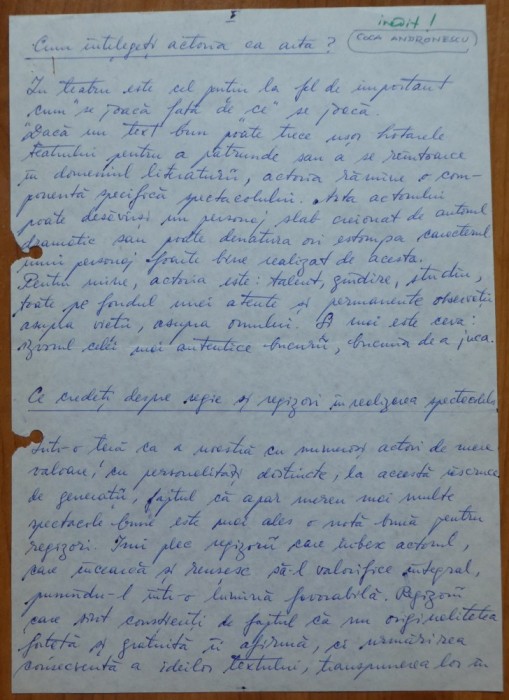 I
inedit !
COCA ANDRONESCU
Cum înțelegeți actoria ca artă ?
În teatru este cel puțin la fel de important
"cum" se joacă față de "ce" se joacă.
"Dacă un text bun poate trece ușor hotarele
teatrului pentru a pătrunde sau a se reîntoarce
în domeniul literaturii, actoria rămîne o com-
ponentă specifică spectacolului. Arta actorului
poate desăvîrși un personaj slab creionat de autorul
dramatic sau poate denatura ori estompa caracterul
unui personaj foarte bine realizat de acesta.
Pentru mine, actoria este: talent, gîndire, studiu,
toate pe fondul unei atente și permanente observații
asupra vieții, asupra omului. Și mai este ceva:
izvorul celei mai autentice bucurii, bucuria de a juca.
Ce credeți despre regie și regizori în realizarea spectacolului
Într-o țară ca a noastră cu numeroși actori de mare
valoare, cu personalități distincte, la această
de generații, faptul că apar mereu mai multe
spectacole bune este mai ales o notă bună pentru
regizori. Îmi plac regizorii care iubesc actorul,
care încearcă și reușesc să-l valorifice integral,
punîndu-l într-o lumină favorabilă. Regizorii
care sînt conștienți de faptul că nu originalitatea
forțată și gratuită îi afirmă, ci urmărirea
consecventă a ideilor textului, transpunerea lor în